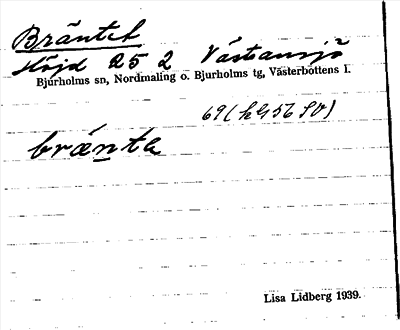 Bräntet
Höjd 25 2 Västansjö
Bjurholms sn, Nordmaling o. Bjurholms tg, Västerbottens l.
69 (h G 56 SV)
bränta
Lisa Lidberg 1939.